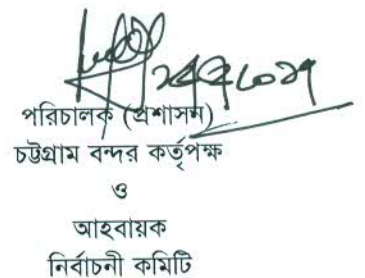 পরিচালক (প্রশাসন)
চট্টগ্রাম বন্দর কর্তৃপক্ষ
ও
আহবায়ক
নির্বাচনী কমিটি